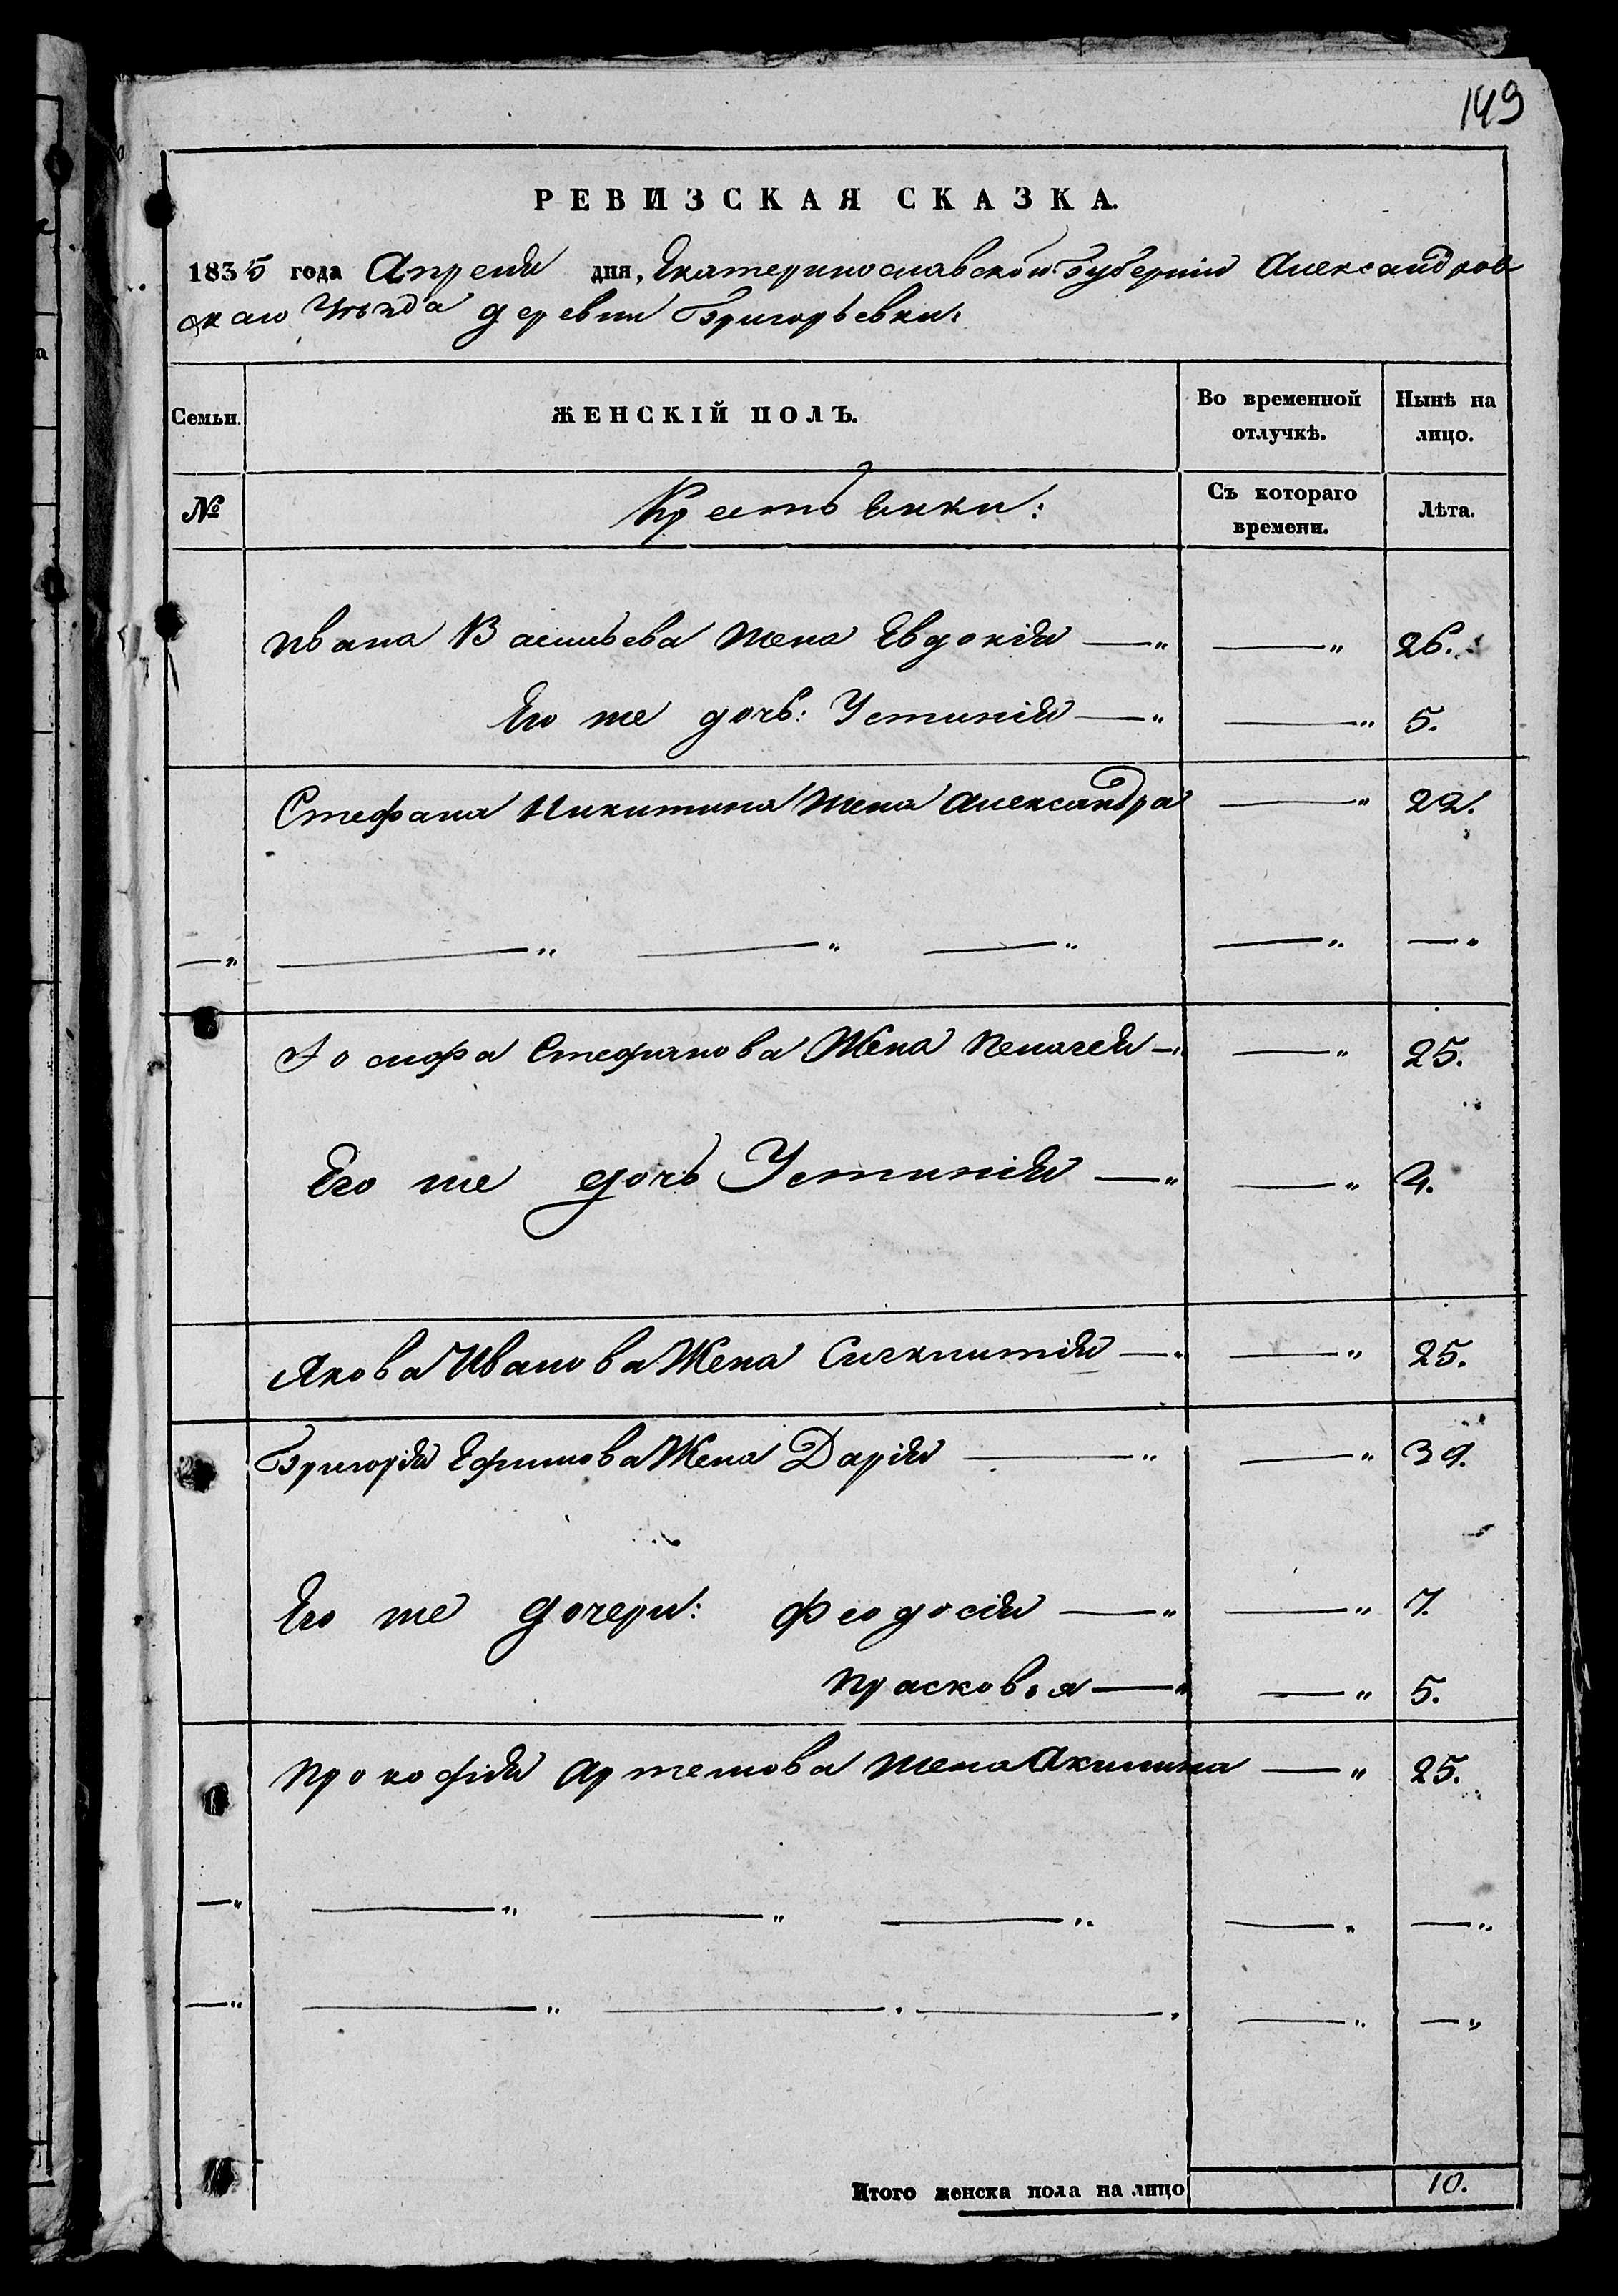 149
РЕВИЗСКАЯ СКАЗКА.
1835 года Апреля дня, Екатеринославской Губернии Александров
скаго Уѣзда деревни Григорьевки:
Семьи. ЖЕНСКІЙ ПОЛЪ. Во временной отлучкѣ. Нынѣ на лицо.
№ Крестьянки: Съ котораго времени. Лѣта.
Ивана Васильева жена Евдокія —„ —„ 26.
Его же дочь: Устинія —„ —„ 5.
Стефана Никитина жена Александра —„ 22.
—„ —„ —„ —„ —„ —„
Іосифа Стефанова Жена Пелагея —„ —„ 25.
Его же дочь Устинія —„ —„ 4.
Якова Иванова Жена —„ —„ 25.
Григорія Ефимова Жена Дарія —„ —„ 39.
Его же дочери: Феодосія —„ —„ 7.
Прасковья —„ —„ 5.
Прокофія Артемова жена Акилина —„ 25.
—„ —„ —„ —„ —„ —„
—„ —„ —„ —„ —„ —„
Итого женска пола на лицо 10.